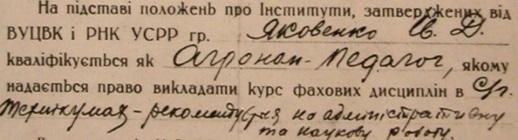 На підставі положень про Інститути, затверджених від
ВУЦВК і РНК УСРР гр. Яковенко И. Д.
кваліфікується як Агроном-Педагог, якому
надається право викладати курс фахових дисциплін в С/г.
Технікумах - рекомендується на адміністративну
та наукову роботу.